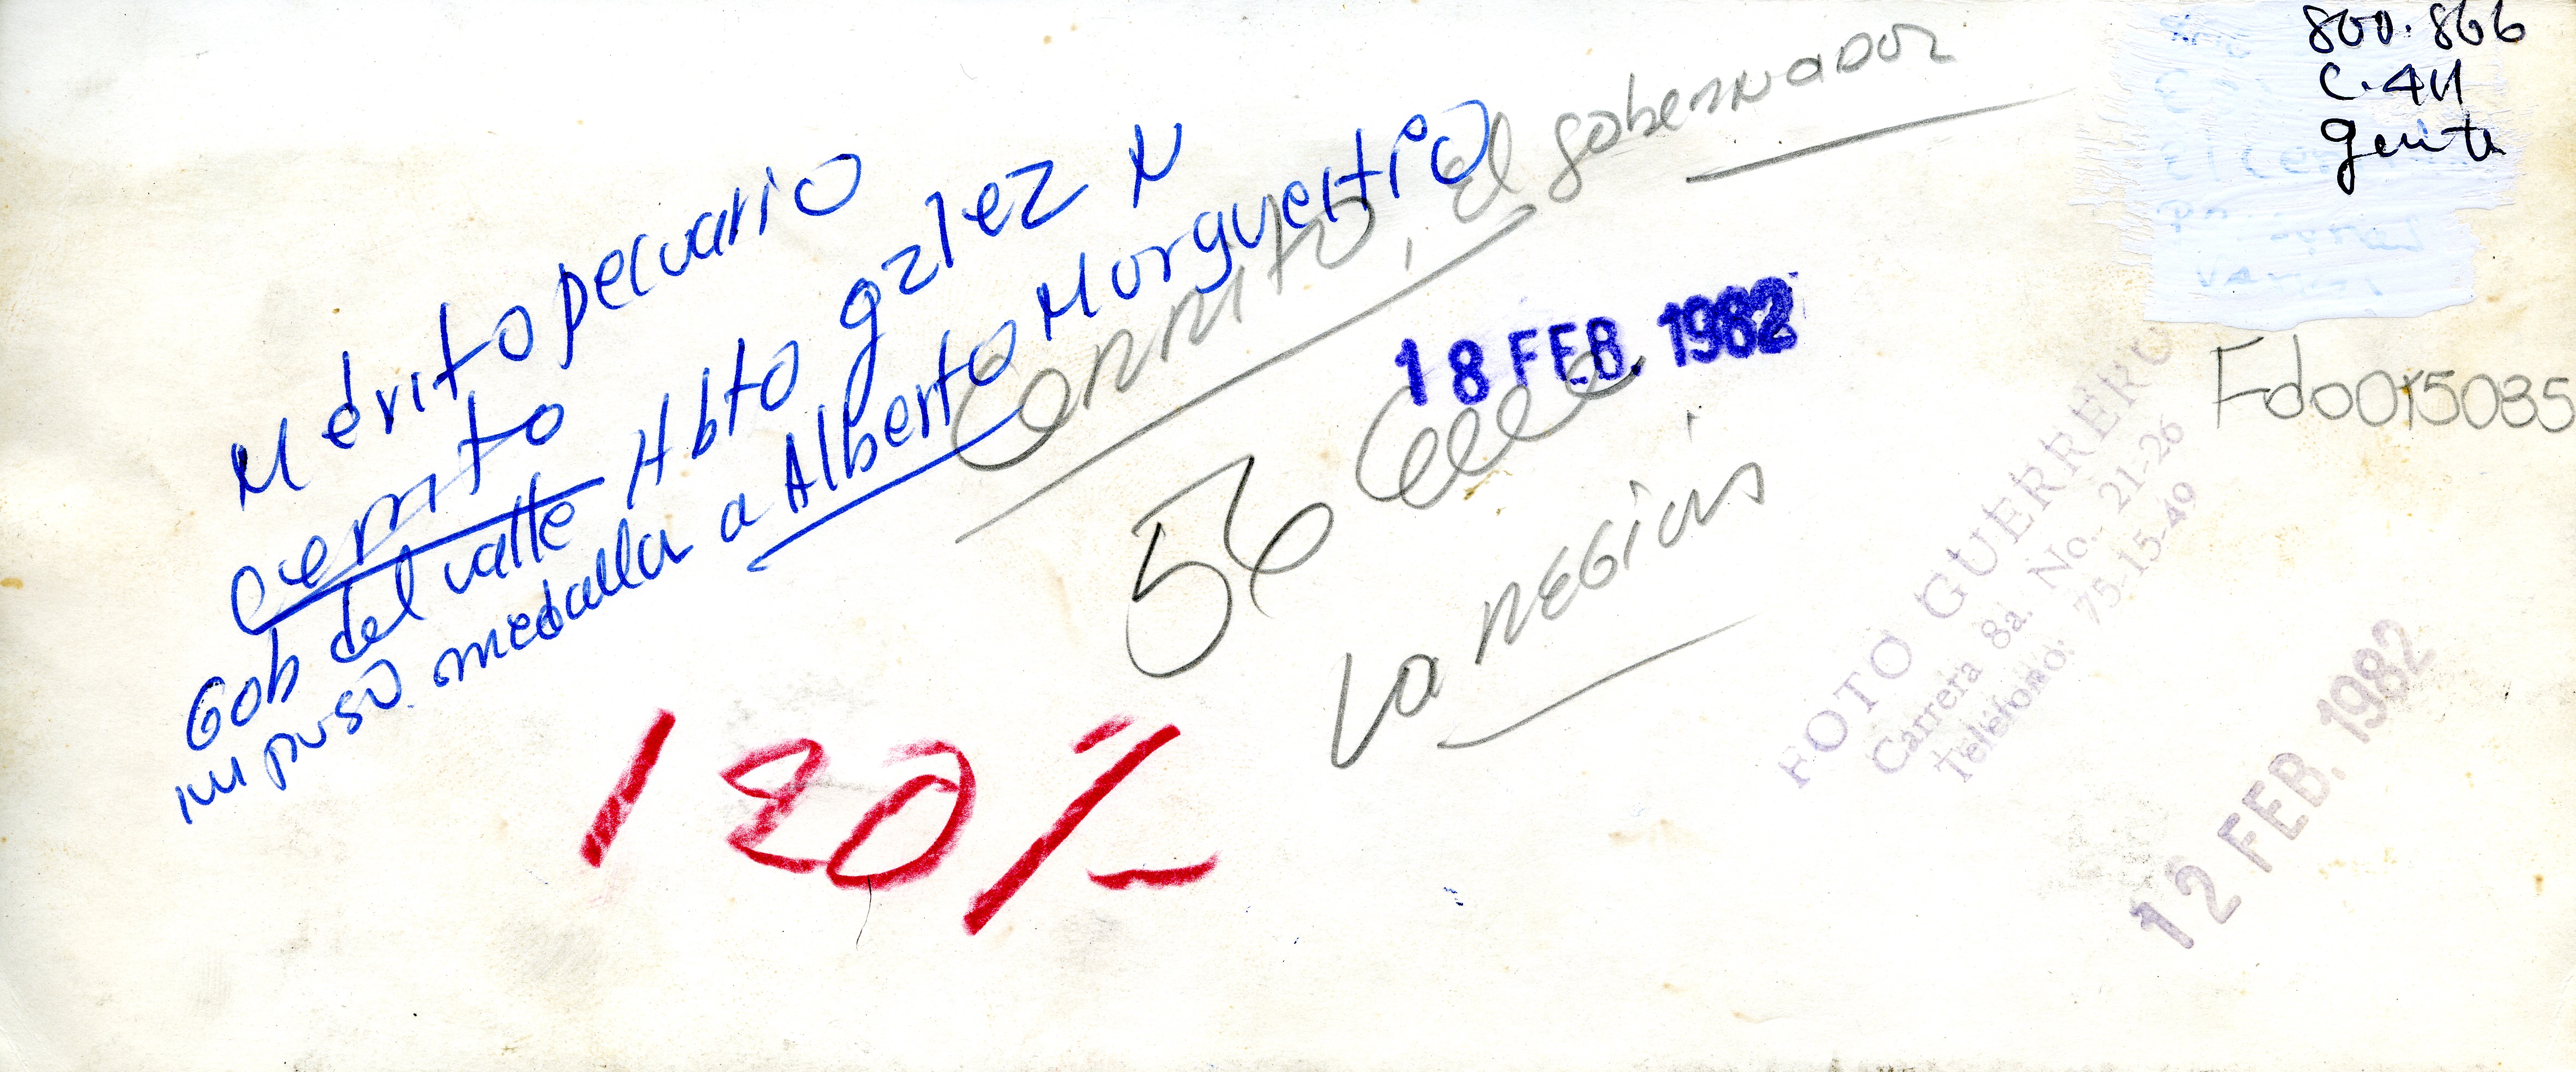 800.866
C.411
gente
Mérito pecuario
Cerrito
Gob del valle Hbto gzlez N
impuso medalla a Alberto Murgueitio
Cerrito, El gobernador
18 FEB. 1982
56
La REGION
Fdo015035
FOTO GUERRERO
Carrera 8a. No. 21-26
Teléfono: 75-15-49
12 FEB. 1982
120%